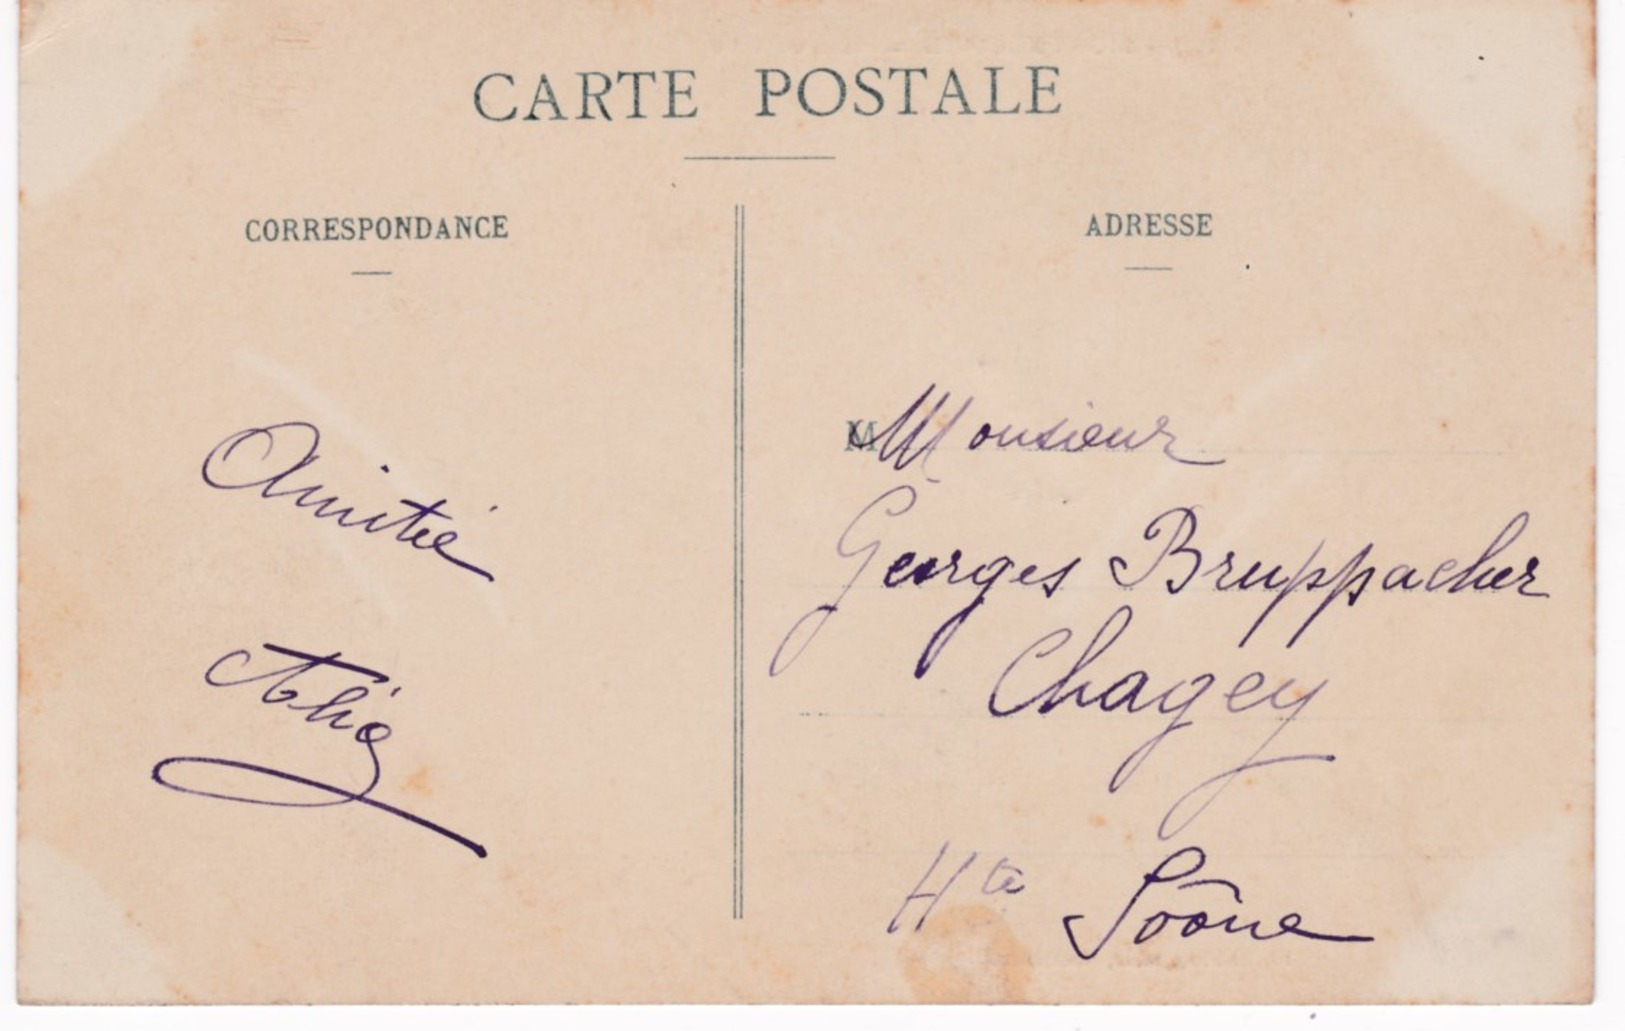 CARTE POSTALE
CORRESPONDANCE
Amitié
ADRESSE
M Monsieur
Georges Bruppacher
Chagey
Hte Saône